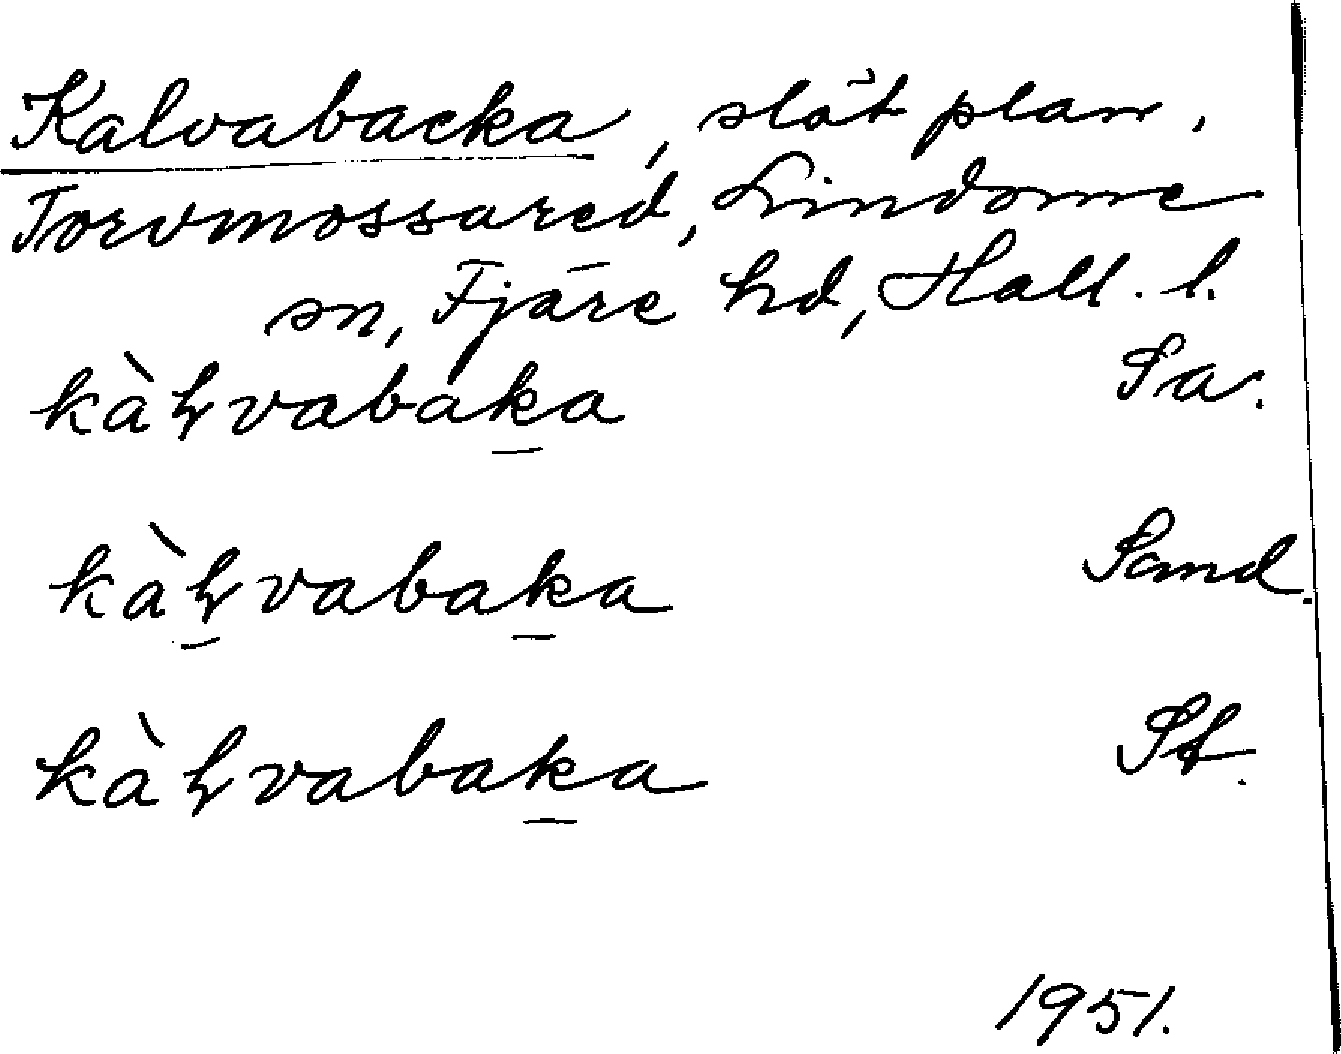 Kalvabacka, slät plan,
Torvmossared, Lindome
sn, Fjäre hd, Hall. l.
kàꞎvabaka Sa.
kàꞎvabaka Sand.
kàꞎvabaka St.
1951.